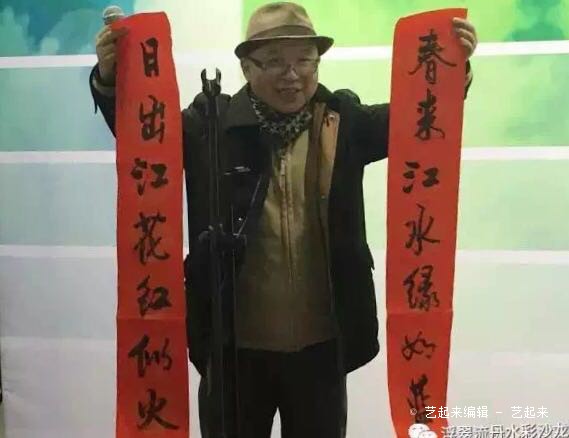 日出江花红似火
春来江水绿如蓝
© 艺起来编辑 - 艺起来
浮翠流丹水彩沙龙